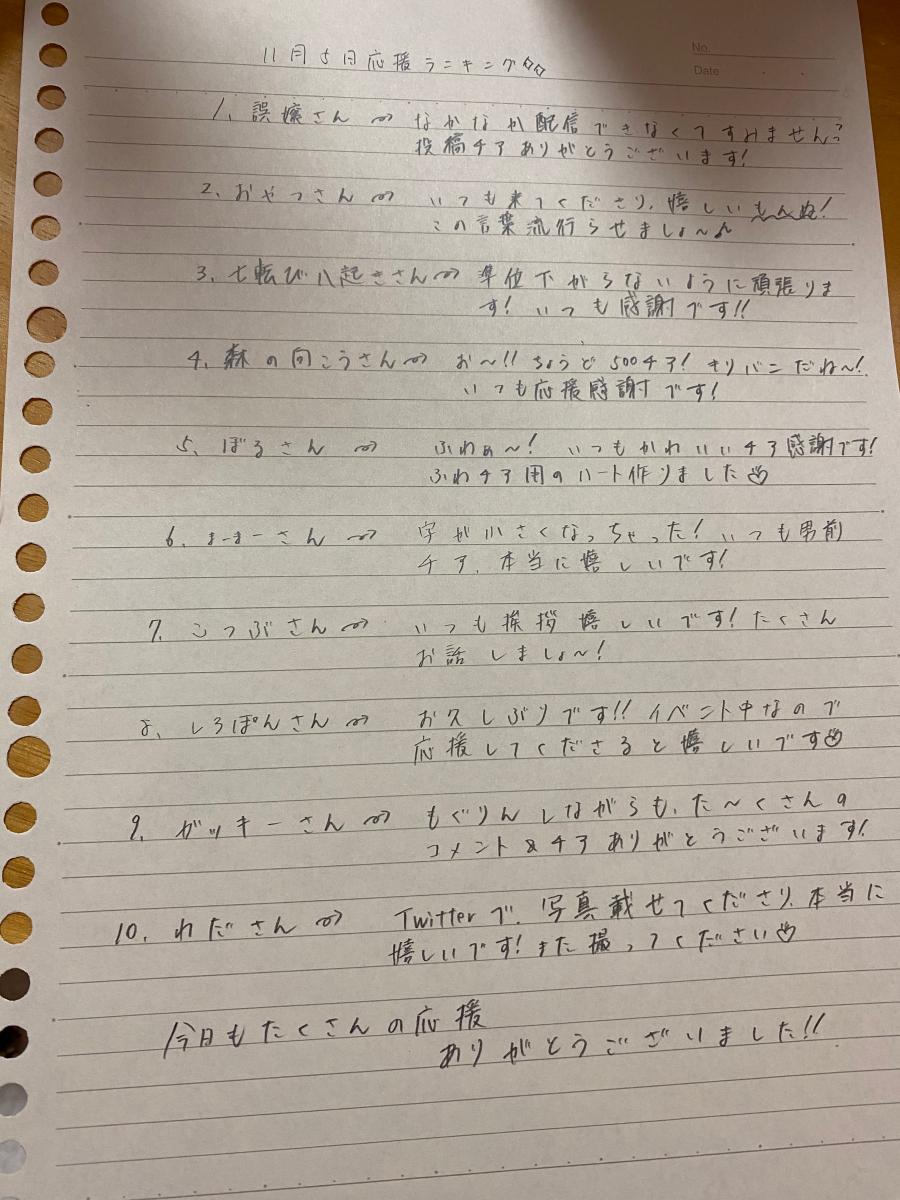 No.
Date
11月5日応援ランキング☆☆
1. 誤嬢さん⇝ なかなか配信できなくてすみません?
投稿チアありがとうございます!
2. おやつさん⇝ いつも来てくださり、嬉しいもんぬ!
この言葉流行らせましょ〜ん
3. 七転び八起きさん⇝ 準位下がらないように頑張りま
す! いつも感謝です!!
4. 森の向こうさん⇝ お〜!! ちょうど500チア! キリバンだね〜!
いつも応援感謝です!
5. ぽるさん⇝ ふわぁ〜! いつもかわいいチア感謝です!
ふわチア用のハート作りました♡
6. まーまーさん⇝ 字が小さくなっちゃった! いつも男前
チア、本当に嬉しいです!
7. こつぶさん⇝ いつも挨拶嬉しいです! たくさん
お話しましょ〜!
8. しろぽんさん⇝ お久しぶりです!! イベント中なので
応援してくださると嬉しいです♡
9. ガッキーさん⇝ もぐりんしながらも、た〜くさんの
コメント&チアありがとうございます!
10. わださん⇝ Twitterで、写真載せてくださり、本当に
嬉しいです! また撮ってください♡
今日もたくさんの応援
ありがとうございました!!